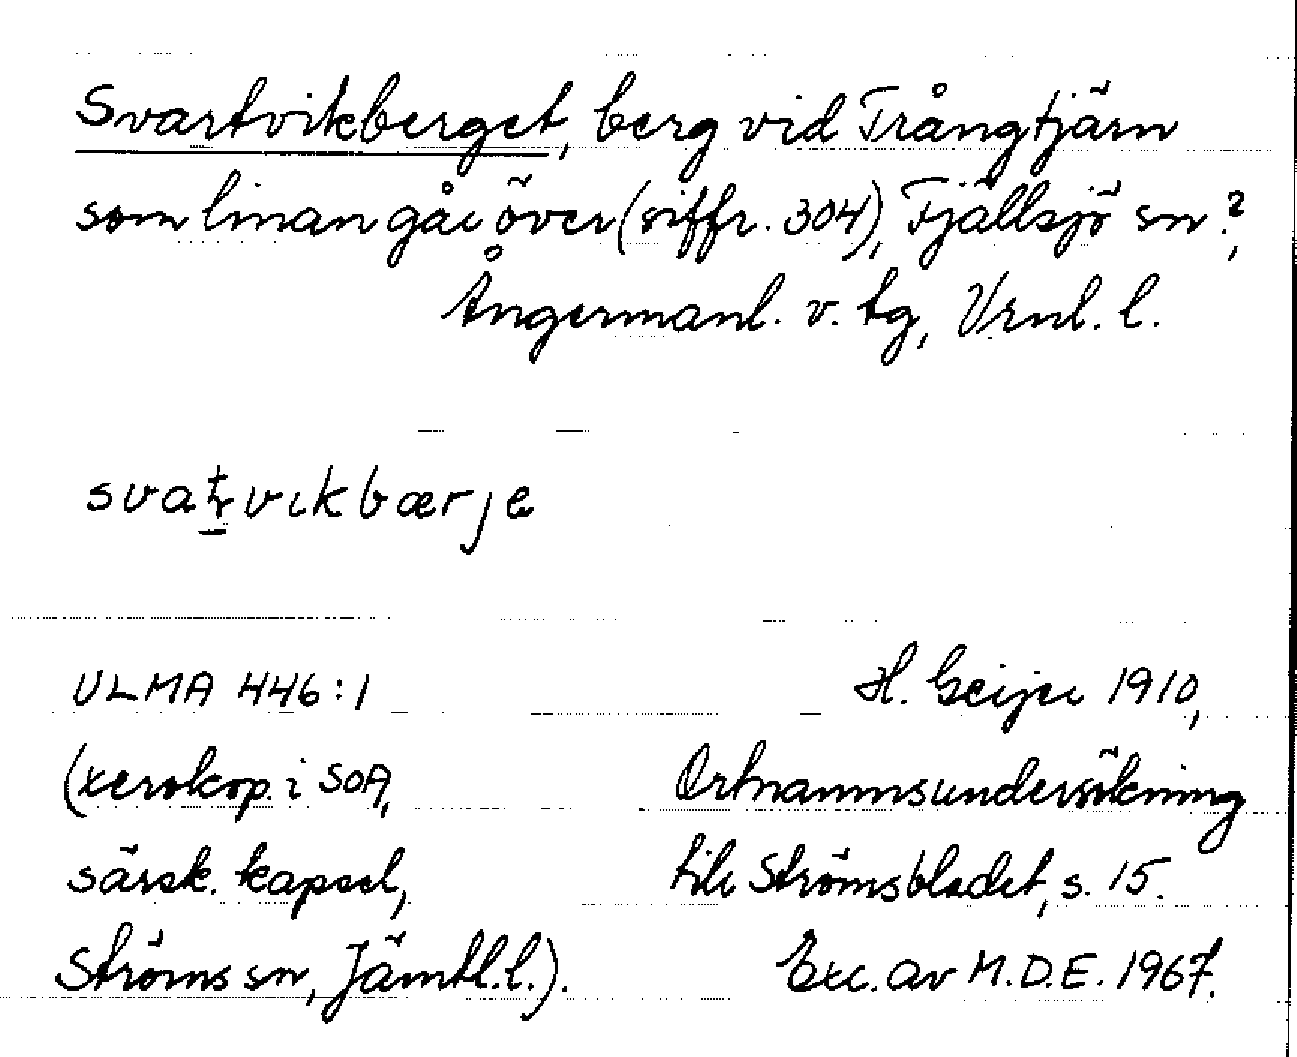 Svartvikberget, berg vid Trångtjärn
som linan går över (siffr. 304), Fjällsjö sn?,
Ångermanl. v. tg, Vrnl. l.
svatvikbærje
ULMA 446:1
(xerokop. i SOA,
särsk. kapsel,
Ströms sn, Jämtl.l.).
H. Geijer 1910,
Ortnamnsundersökning
till Strömsbladet, s. 15.
Exc. av M.D.E. 1967.